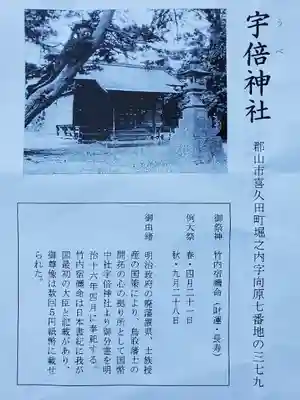 宇倍神社
うべ
郡山市喜久田町堀之内字向原七番地の三七九
御祭神 竹内宿禰命(財運・長寿)
例大祭 春・四月二十一日
秋・九月二十八日
御由緒 明治政府の廃藩置県、士族授
産の国策により、鳥取藩士の
開拓の心の拠り所として国幣
中社宇倍神社より御分霊を明
治十六年四月に奉祀する。
竹内宿禰命は日本書紀に我が
国最初の大臣と記載があり、
御尊像は数回5円紙幣に載せ
られた。